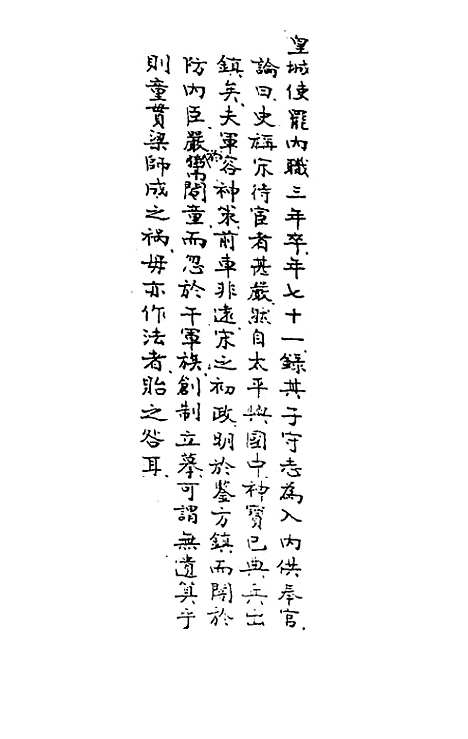 皇城使罷內職三年卒年七十一錄其子守志為入內供奉官
論曰史稱宋待宦者甚嚴然自太平興國中神寶已典兵出
鎮矣夫軍容神策前車非遠宋之初政明於鑒方鎮而闇於
防內臣嚴於閹童而忽於干軍旅創制立摹可謂無遺算乎
則童貫梁師成之禍毋亦作法者貽之咎耳